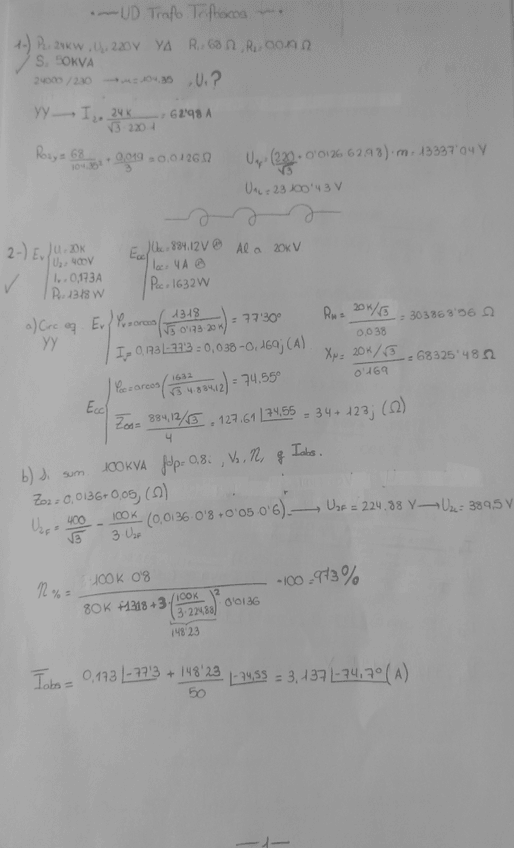 UD Trafo Trifásicos
1-) P₂: 24KW, U₂: 220V YΔ R₁: 68Ω, R₂: 0.019Ω
S: 50KVA
24000/230 → m = 104.35 ¿U₁?
YY → I₂ = 24K / √3·220·1 = 62'98A
R₀₂y = 68 / 104.35² + 0.019 / 3 = 0.0126Ω U₁f = (220/√3 + 0'0126·62'98)·m = 13337'04V
U₁L = 23100'43V
2-) Ev U₁ = 20K Ecc Ucc = 884.12V Al a 20KV
U₂ = 400V Icc = 4A
Iv = 0,173A Pcc = 1632W
P₀ = 1318W
a) Circ eq Ev φv = arcos(1318 / √3 0'173·20K) = 77'30° Rн = 20K/√3 / 0.038 = 303868'56 Ω
YY Iv = 0,173 ∠-77'3 = 0,038 - 0,169j (A) Xμ = 20K/√3 / 0'169 = 68325'48 Ω
Ecc φcc = arcos(1632 / √3·4·884,12) = 74.55°
Z̅cc = 884,12/√3 / 4 = 127.61 ∠74,55 = 34 + 123j (Ω)
b) si sum 100KVA fdp = 0.8. ¿V₂, η, y Iabs.
Z₀₂ = 0,0136 + 0,05j (Ω)
U₂F = 400/√3 - 100K / 3·U₂F (0,0136·0'8 + 0'05·0'6) → U₂F = 224,88 V → U₂L = 389.5V
η% = 100K·0'8 / 80K + 1318 + 3·(100K / 3·224,88)²·0'0136 ·100 = 97'3%
148'23
I̅abs = 0,173 ∠-77'3 + 148'23 / 50 ∠-74,55 = 3,137 ∠-74,7° (A)
-1-